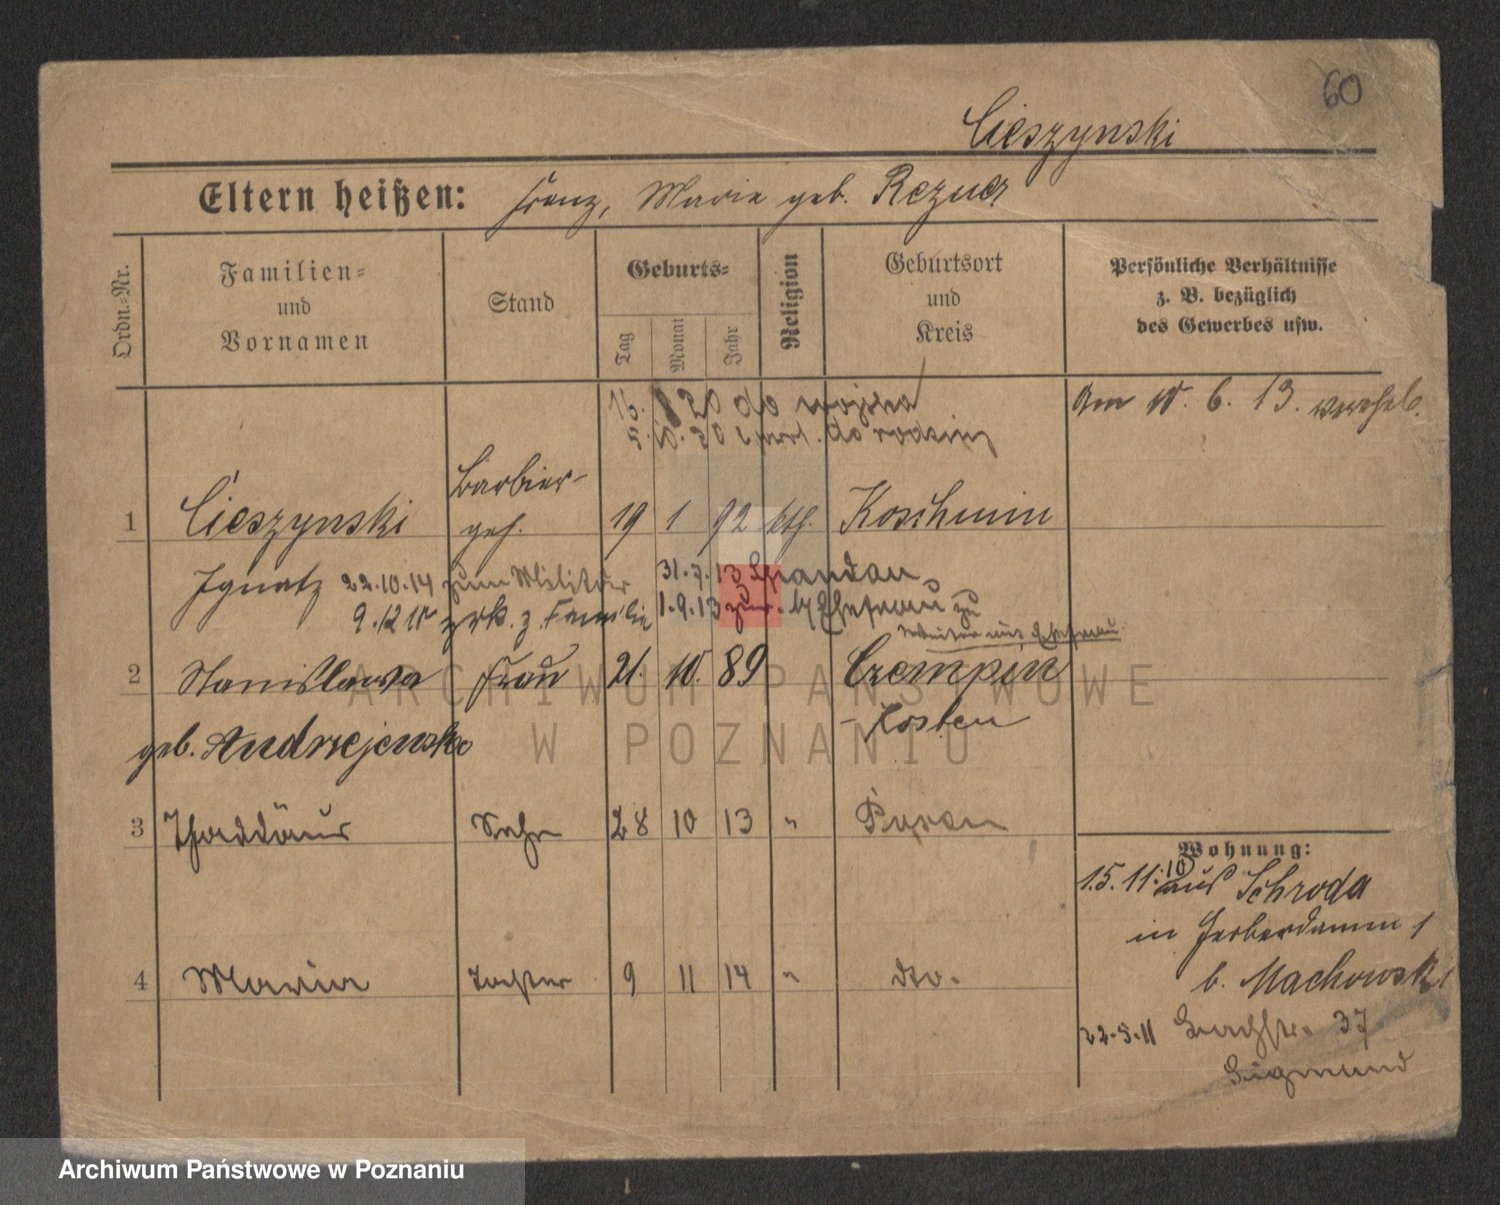 60
Cieszynski
Eltern heißen: Franz, Marie geb. Rezner
Ordn.-Nr.
Familien-
und
Vornamen
Stand
Geburts-
Tag
Monat
Jahr
Religion
Geburtsort
und
Kreis
Persönliche Verhältnisse
z. B. bezüglich
des Gewerbes usw.
16. 20 do wojska
5.10.20 do rodziny
Am 10. 6. 13. verehel.
1 Cieszynski Barbier-
geh. 19 1 92 kth. Koschmin
Ignatz 22.10.14 zum Militär 31.7.13 Spandau
9.12 15 zrk. z. Familie 1.9.13 zur. Ehefrau zu
Weiter mit Ehefrau
2 Stanislawa Frau 21. 10. 89 Czempin
geb. Andrzejewska - Kosten
3 Thaddäus Sohn 28 10 13 " Posen
4 Maria Tochter 9 11 14 " dto.
Wohnung:
15.11.10 aus Schroda
in Gerberdamm 1
b. Machowski
22.5.11 Bachstr. 37
Sigmund
ARCHIWUM PAŃSTWOWE
W POZNANIU
Archiwum Państwowe w Poznaniu